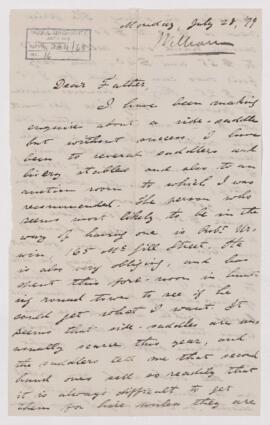 Monday, July 28, '79
William
Dear Father
I have been making
enquiries about a side-saddle
but without success. I have
been to several saddlers and
livery stables and also to an
auction room to which I was
recommended. The person who
seems most likely to be in the
way of having one is Robt Ir-
win, 165 McGill Street. He
is also very obliging, and has
spent this fore-noon in hunt
ing round town to see if he
could get what I want. It
seems that side-saddles are un
usually scarce this year, and
the saddlers tell me that second
hand ones sell so readily that
it is always difficult to get
them for hire unless they are